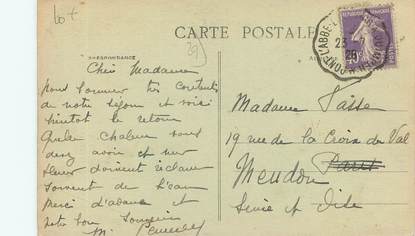 10 +
29)
CARTE POSTALE
CORRESPONDANCE
PONT-L'ABBE
RÉPUBLIQUE FRANÇAISE
23
25
40c
Chère Madame
nous sommes très contents
de notre séjour et voici
bientôt le retour
Quelle chaleur vous
devez avoir et vos
fleurs doivent réclamer
souvent de l'eau
Merci d'avance et
notre bon souvenir
M.
Madame
19 rue de la Croix du Val
Meudon
Paris
Seine et Oise